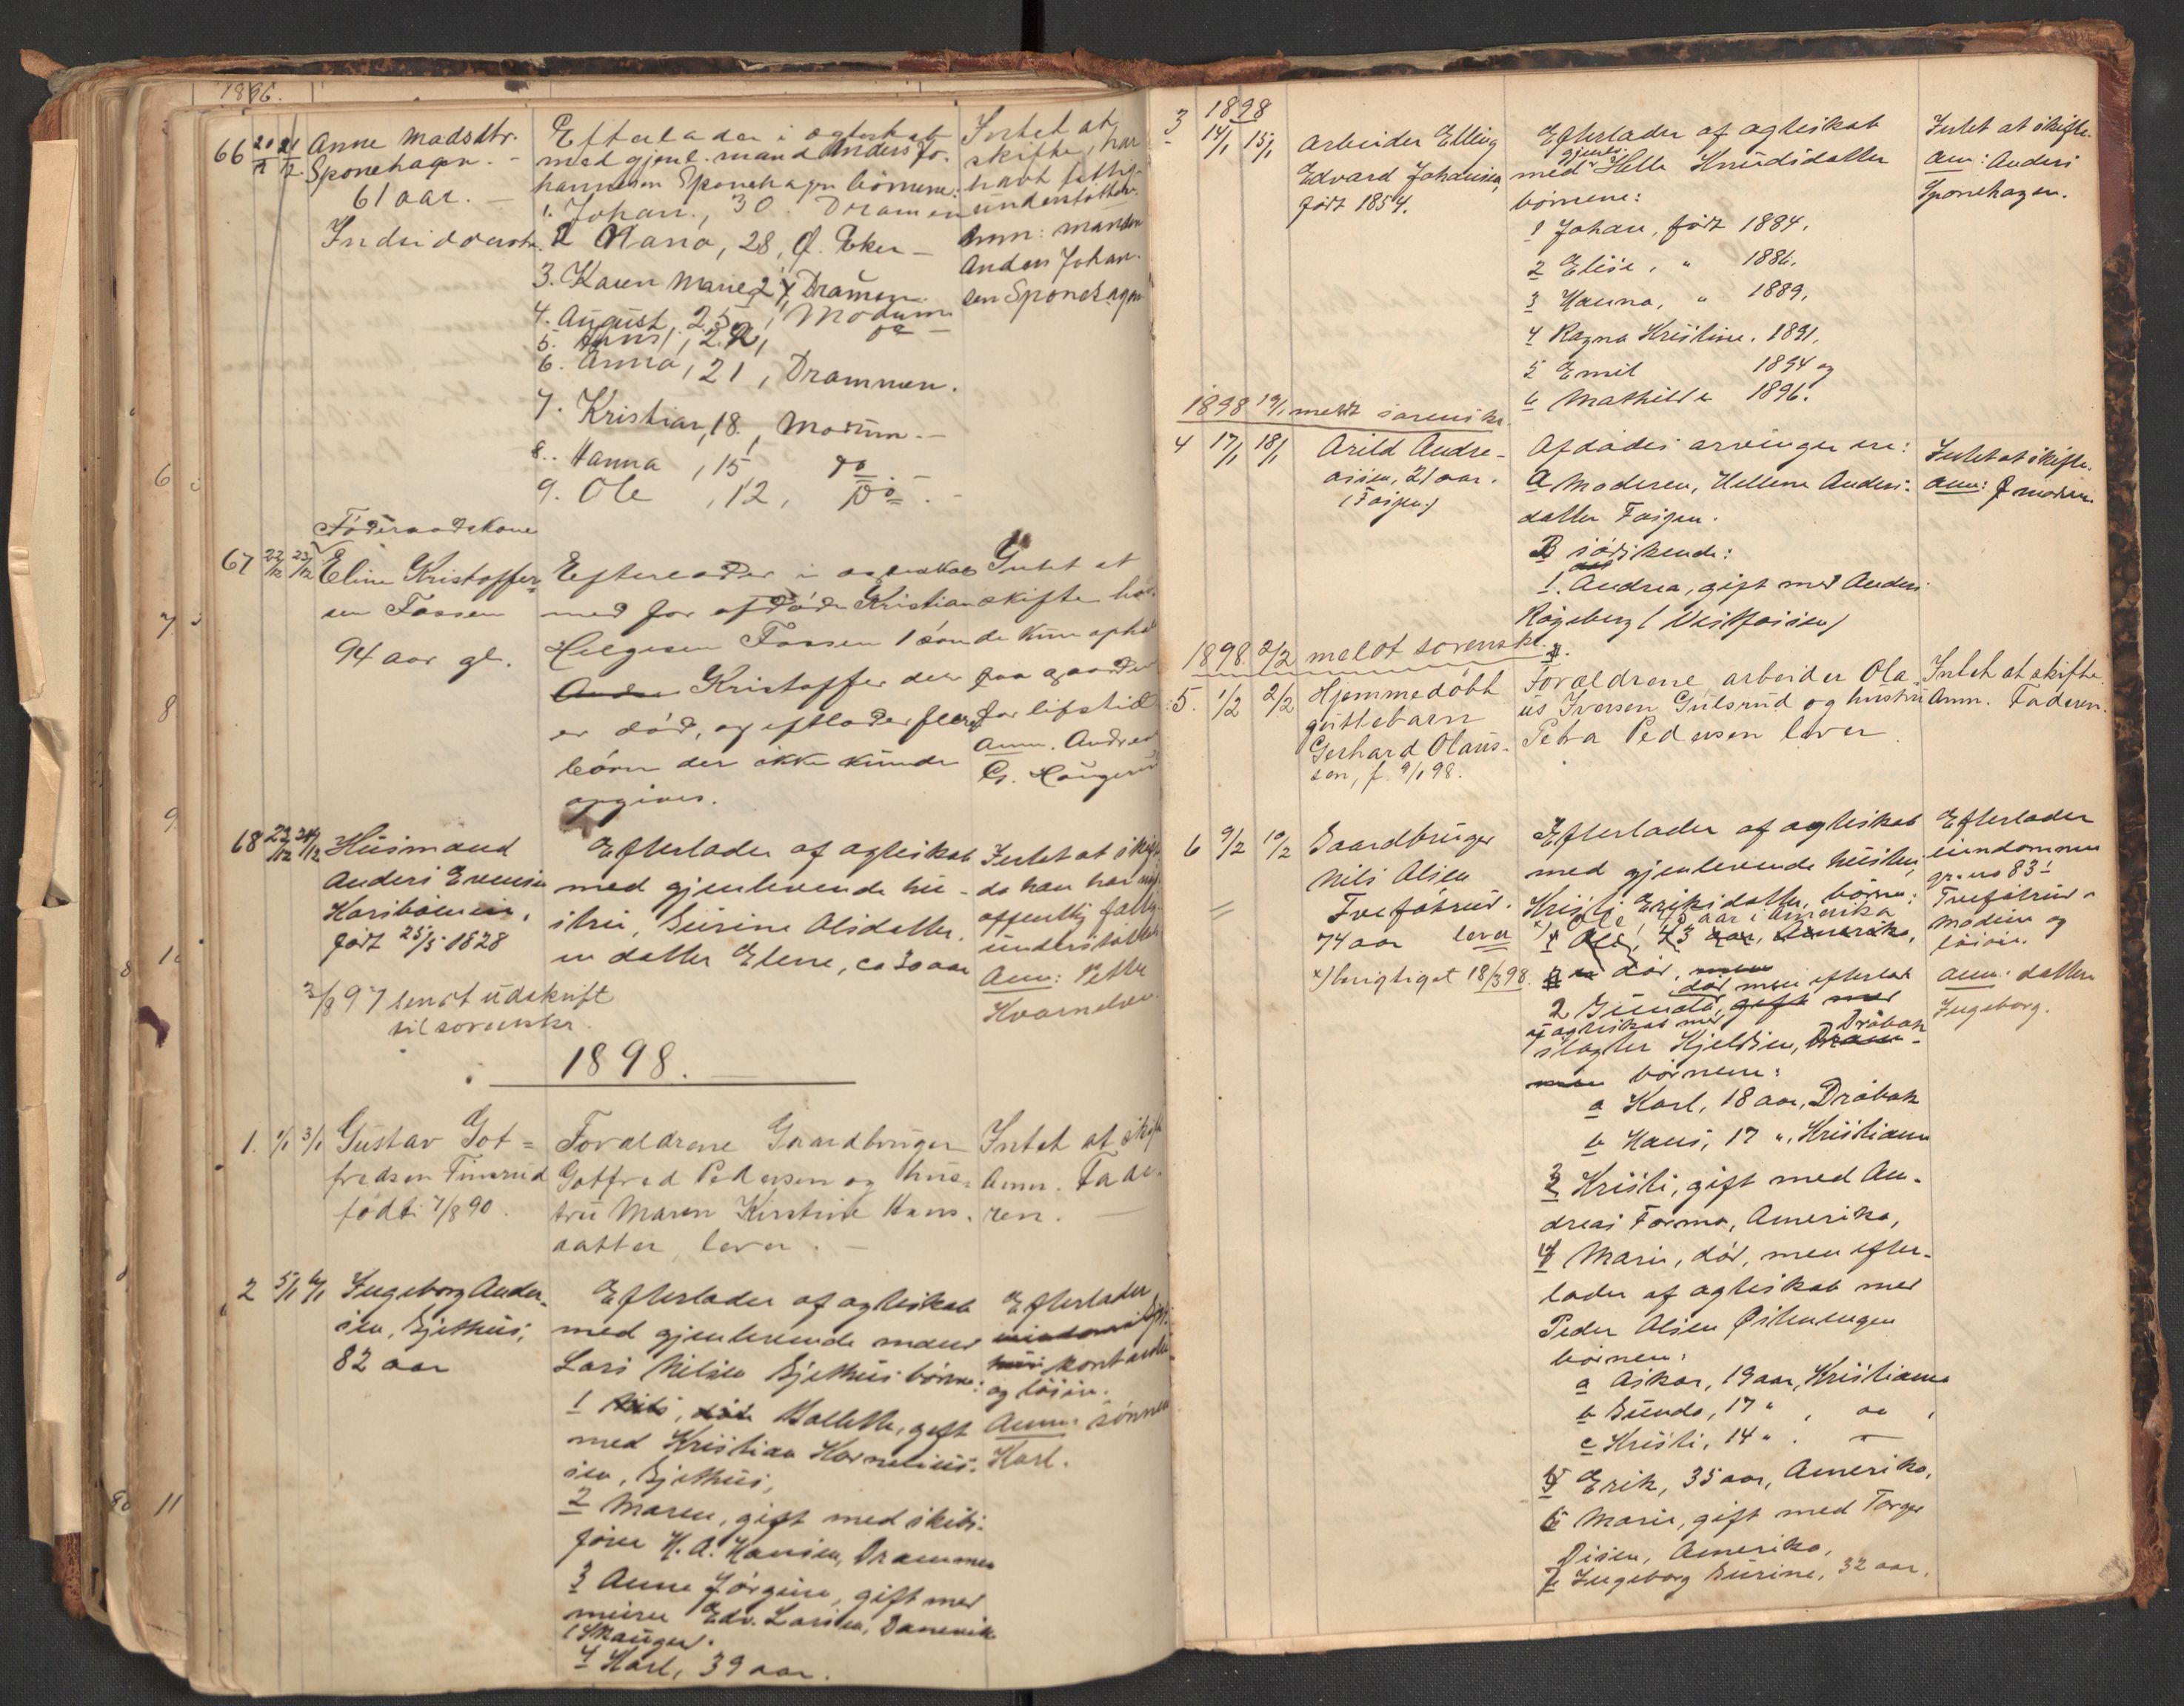 1896.
66 20/12 21/12 Anne Madsdtr.
Sponehagen. -
61 aar. -
Indsidderske.
Efterlader i ægteskab
med gjenl. mand Anders Jo-
hannesen Sponehagen børnene:
1. Johan, 30. Drammen
2 Olava, 28, Ø. Eker -
3. Karen Marie, 27, Drammen.
4. August, 25, Modum
5. Hans, 22, do -
6. Anna, 21, Drammen.
7. Kristian, 18, Modum. -
8. Hanna, 15 do
9. Ole, 12, Do. -
Intet at
skifte, har
havt fattig-
understøttelse.
Anm: manden
Anders Johan-
sen Sponehagen
Føderaadskone
67 22/12 23/12 Eline Kristoffer-
sen Fossen
94 aar gl.
Efterlader i ægteskab
med før afdøde Kristian
Helgesen Fossen 1 søn
Kristoffer der
er død, og eftlader flere
børn der ikke kunde
opgives.
Intet at
skifte ha-
de kun ophold
paa gaarden
for lifstid
Anm. Andreas
G. Haugerud
68 23/12 24/12 Husmand
Anders Evensen
Korsbøneie,
født 25/5 1828
Efterlader af ægteskab
med gjenlevende hu-
stru, Gurine Olsdatter.
en datter Elene, ca 30 aar
Intet at skifte
da han har
offentlig fattig-
understøttelse
Anm: Petter
Kvarnelven
3/8 97 sendt udskrift
til sorenskr.
1898.
1. 1/1 3/1 Gustav Got=
fredsen Finsrud
født: 7/8 90.
Forældrene Gaardbruger
Gotfred Pedersen og hus-
tru Maren Kirstine Hans-
datter lever. -
Intet at skifte
Anm. Fade-
ren. -
2 5/1 6/1 Ingeborg Ander-
sen, Gjethus,
82 aar
Efterlader af ægteskab
med gjenlevende mand
Lars Nilsen Gjethus børn:
1 Mallette, gift
med Kristian Kornelius-
sen, Gjethus,
2 Maren, gift med skibs-
fører H. A. Hansen, Drammen
3 Anne Jørgine, gift med
murer Edv. Larsen, Danevik
(Skauger.
4 Karl, 39 aar.
Efterlader
kontanter
og løsøre.
Anm: sønnen
Karl.
1898
3 14/1 15/1 Arbeider Elling
Edvard Johansen,
født 1854.
Efterlader af ægteskab
gjenlev.
med Helle Knudsdatter
børnene:
1 Johan, født 1884,
2 Elise, " 1886,
3 Hanna, " 1889,
4 Ragna Kristine, 1891,
5 Emil 1894 og
6 Mathilde 1896.
Intet at skifte.
Anm: Anders
Sponehagen.
1898 19/1 meldt sorenskr.
4 17/1 18/1 Arild Andre-
assen, 21 aar.
Afdødes arvinger ere:
A Moderen, Hellene Anders-
datter
B sødskende:
1. Andrea, gift med Anders
Intet at skifte.
Anm: moderen
1898. 2/2 meldt sorenskr.
5. 1/2 2/2 Hjemmedøbt
guttebarn
Gerhard Olaus-
sen, f. 9/1 98.
Forældrene arbeider Ola-
us Iversen Gulsrud og hustru
Petra Pedersen lever.
Intet at skifte
Anm. Faderen.
6 9/2 10/2 Gaardbruger
Nils Olsen
Tveføtrud.
74 aar
Efterlader af ægteskab
med gjenlevende hustru,
Kristi Eriksdatter, børn:
x) Ole, 43 aar i Amerika
lever 1 Ole, 43 aar, Amerika,
x) berigtiget 18/3 98.
død, men
død men efterlad
2 Gunda, gift med
af ægteskab med Drøbak
slagter Kjeldsen, Dram-
men børnene:
a Karl, 18 aar, Drøbak
b Hans, 17 ", Kristiania
3 Kristi, gift med An-
dreas Formo, Amerika,
4 Marie, død, men efter-
lader af ægteskab med
Peder Olsen Østenengen
børnene:
a Askar, 19 aar, Kristiania
b Gunda, 17 ", do,
c Kristi, 14 ". -
5 Erik, 35 aar, Amerika,
6 Marie, gift med Torger
Disen, Amerika,
7 Ingeborg Gurine, 32 aar.
Efterlader
eiendommen
gr. no 83 1
Tveføtrud i
Modum og
løsøre.
Anm: datteren
Ingeborg.
6
7
8
9
10
11